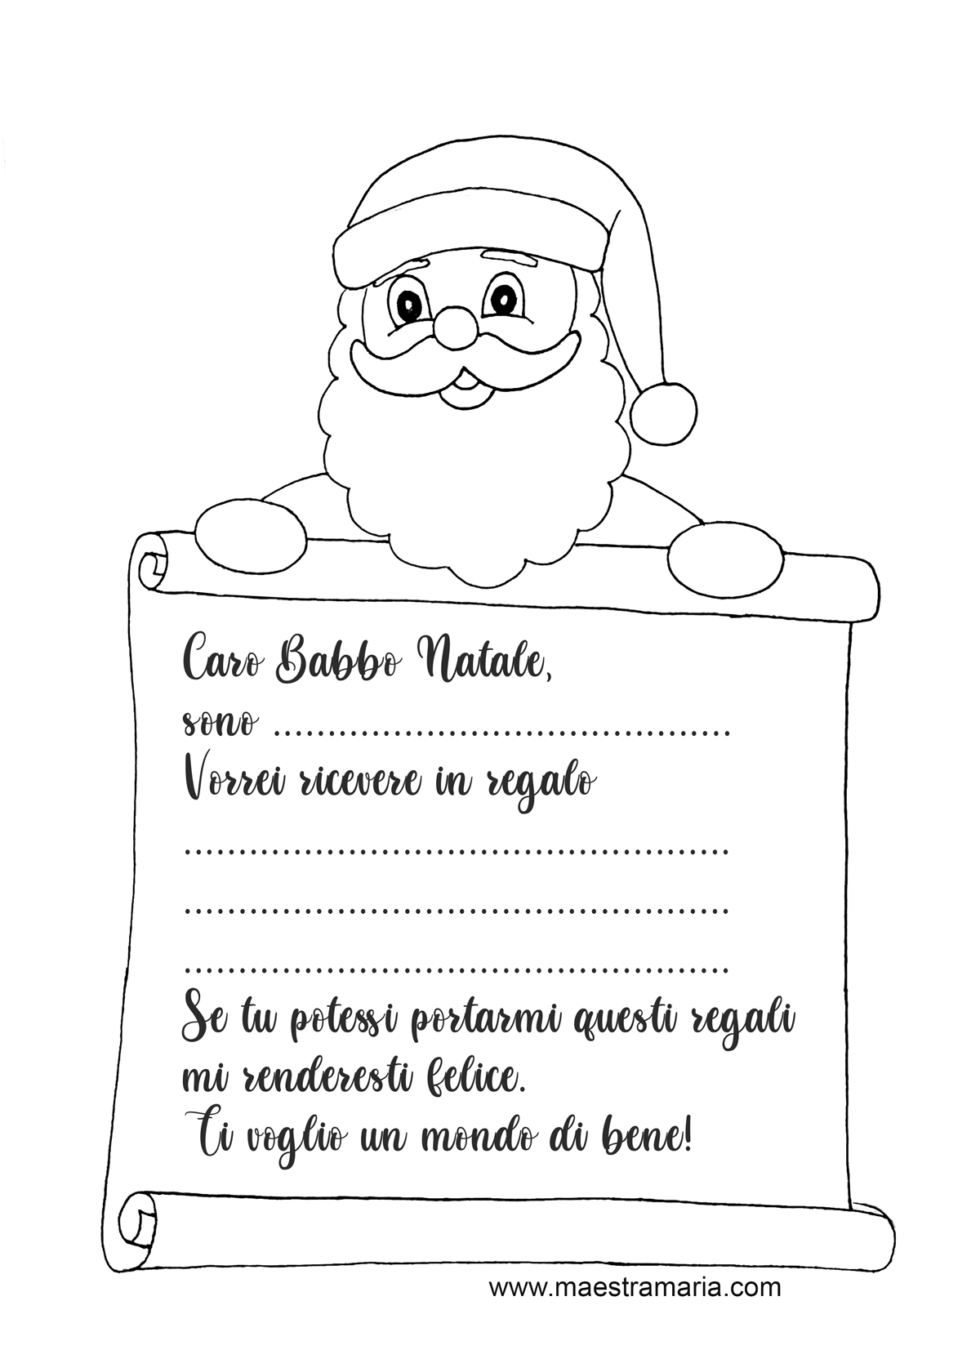 Caro Babbo Natale,
sono ..........................................
Vorrei ricevere in regalo
..................................................
..................................................
..................................................
Se tu potessi portarmi questi regali
mi renderesti felice.
Ti voglio un mondo di bene!
www.maestramaria.com